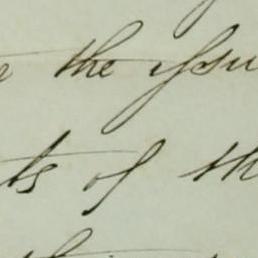 the Issu
ts of th